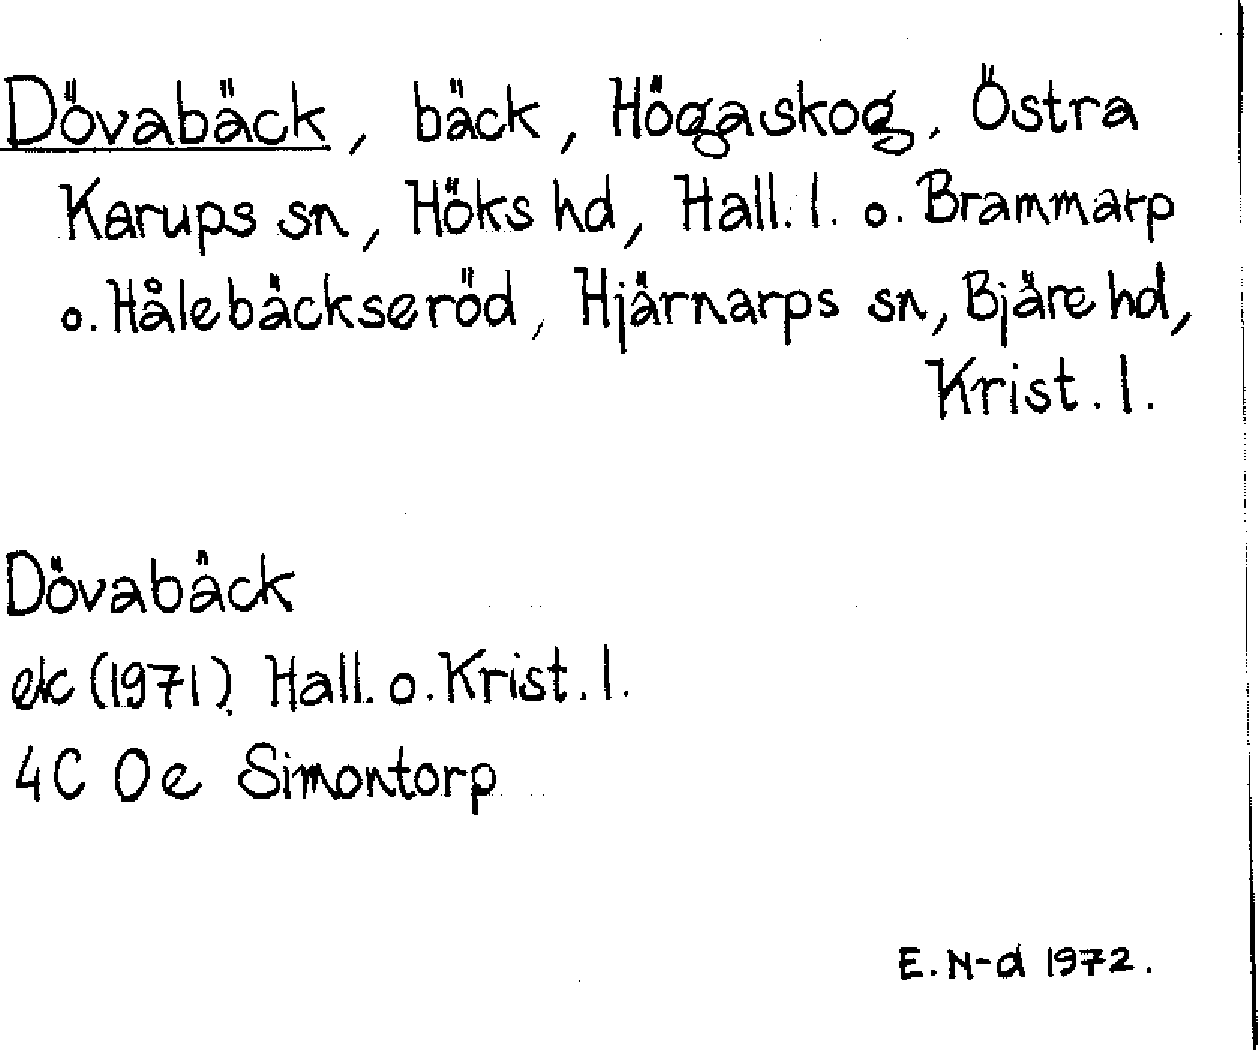 Dövabäck, bäck, Högaskog, Östra
Karups sn, Höks hd, Hall. l. o. Brammarp
o. Hålebäckseröd, Hjärnarps sn, Bjäre hd,
Krist. l.
Dövabäck
ek (1971) Hall. o. Krist. l.
4C Oe Simontorp
E. N-d 1972.